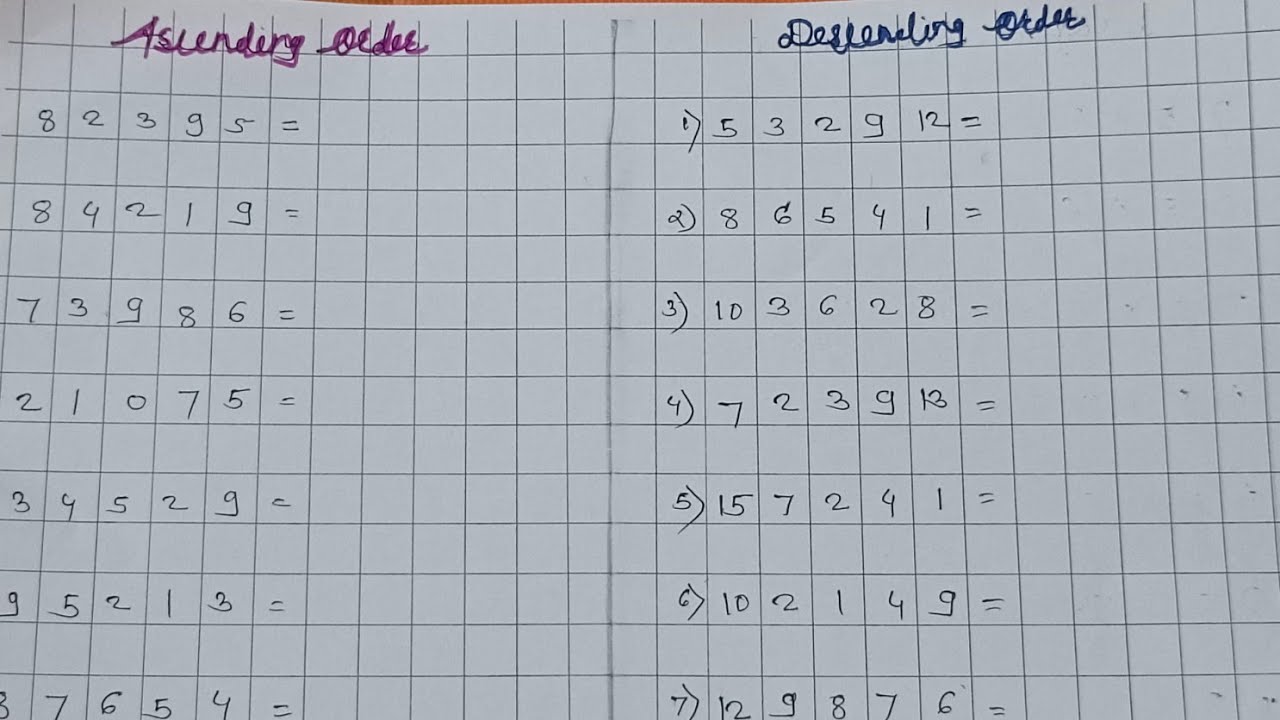 Ascending order
8 2 3 9 5 =
8 4 2 1 9 =
7 3 9 8 6 =
2 1 0 7 5 =
3 4 5 2 9 =
9 5 2 1 3 =
7 6 5 4 =
Descending order
1) 5 3 2 9 12 =
2) 8 6 5 4 1 =
3) 10 3 6 2 8 =
4) 7 2 3 9 13 =
5) 15 7 2 4 1 =
6) 10 2 1 4 9 =
7) 12 9 8 7 6 =